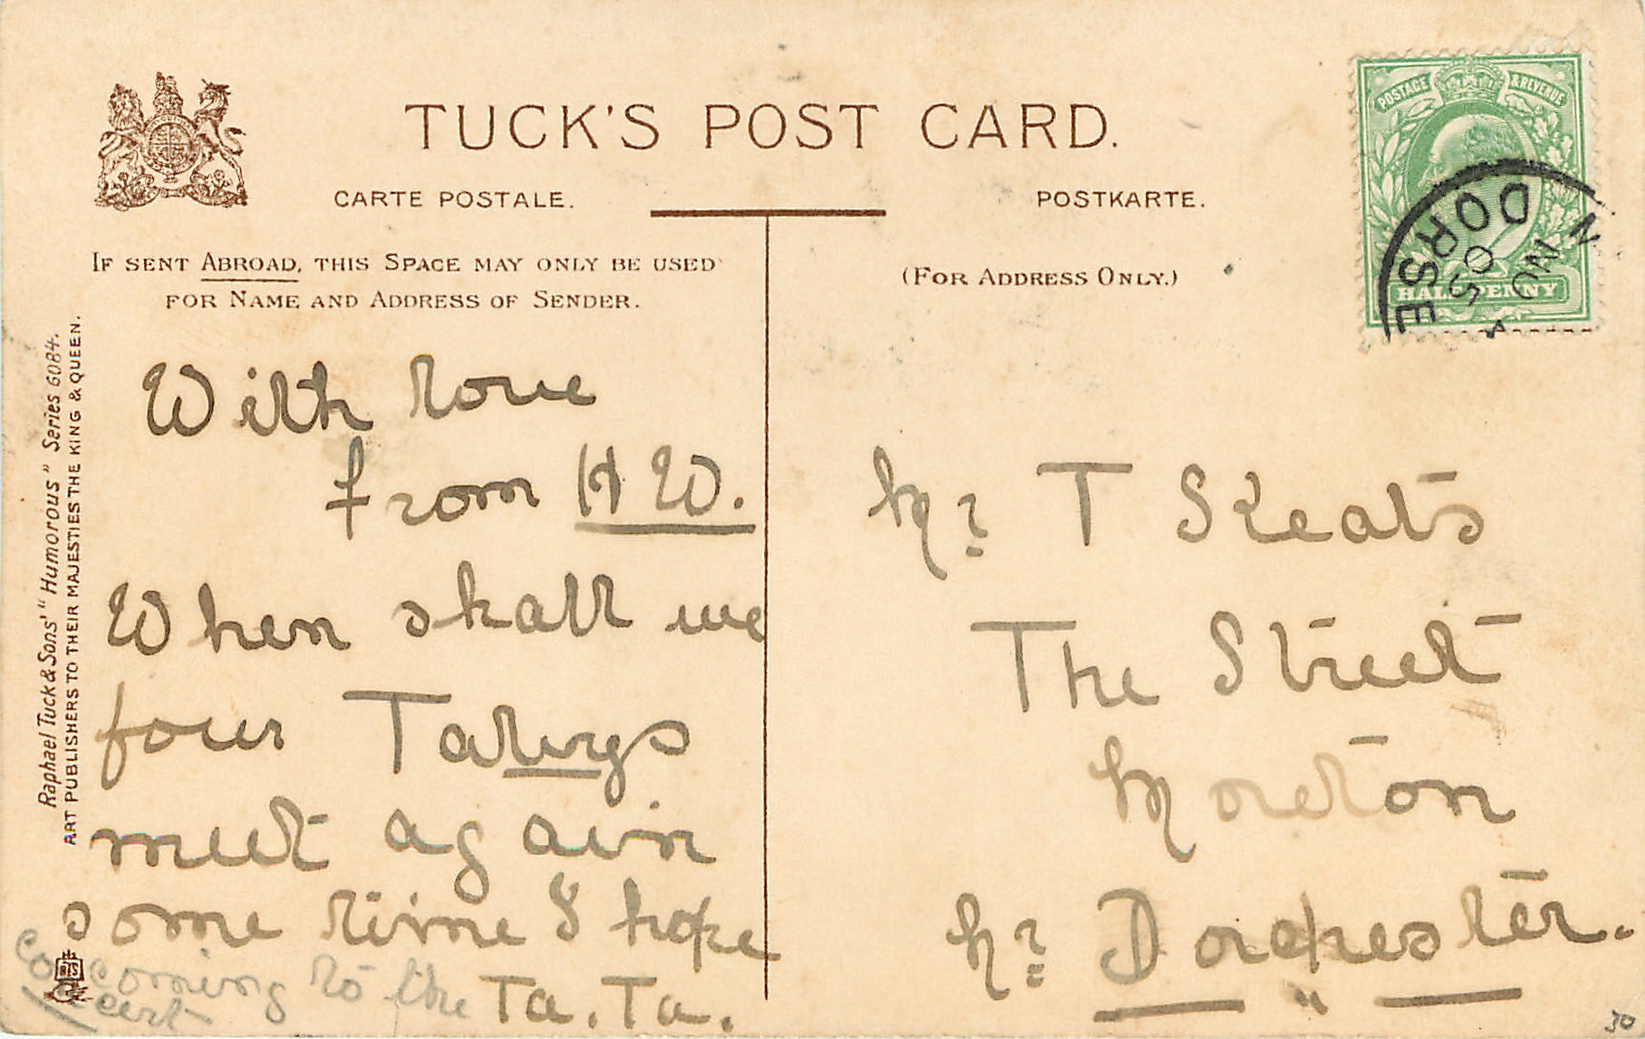 TUCK'S POST CARD.
CARTE POSTALE.
POSTKARTE.
IF SENT ABROAD, THIS SPACE MAY ONLY BE USED
FOR NAME AND ADDRESS OF SENDER.
(FOR ADDRESS ONLY.)
POSTAGE & REVENUE
HALFPENNY
DORSE
NO
05
Raphael Tuck & Sons' "Humorous" Series 6084.
ART PUBLISHERS TO THEIR MAJESTIES THE KING & QUEEN.
With love
from H W.
When shall we
four
meet again
some time I hope
Ta. Ta.
coming to the
concert
Mr T Skeats
The Street
Moreton
Nr Dorchester.
30